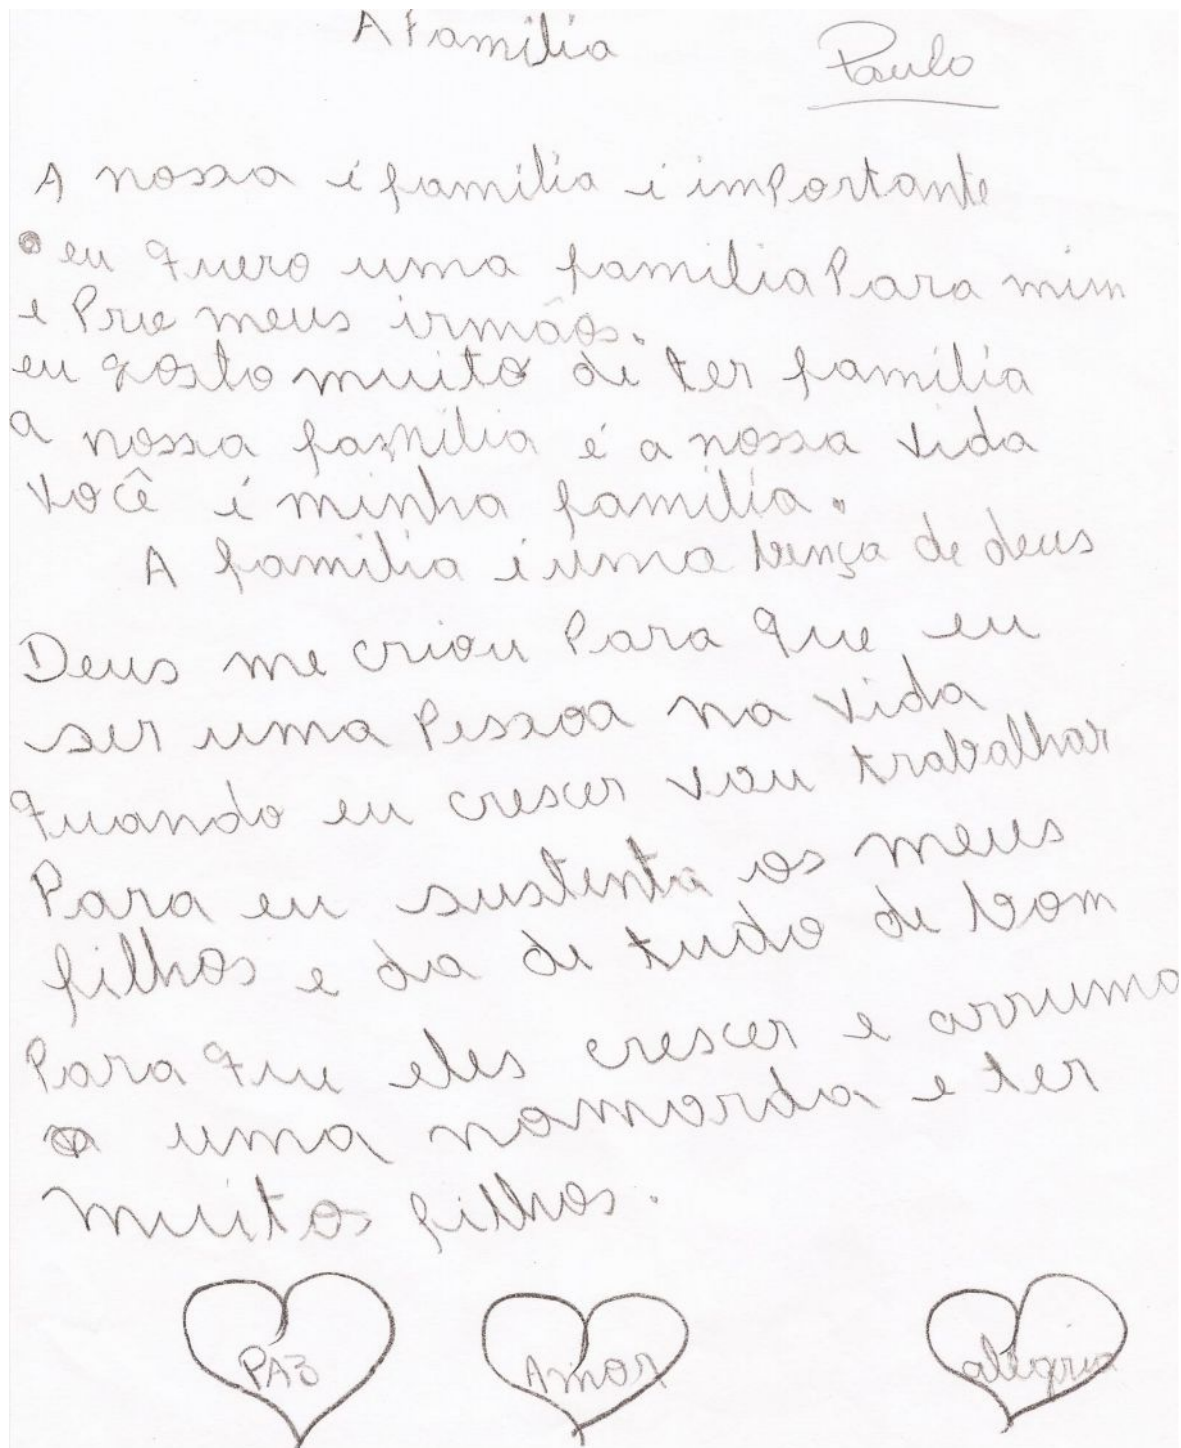 A Familia
Paulo
A nossa é familia é importante
eu quero uma familia para mim
e Pra meus irmãos.
eu gosto muito de ter família
a nossa família é a nossa vida
você é minha família.
A família é uma bença de deus
Deus me criou Para que eu
ser uma Pessoa na vida
quando eu crescer vou trabalhar
Para eu sustenta os meus
filhos e da de tudo de bom
Para que eles crescer e arruma
uma namorda e ter
muitos filhos.
PAZ Amor alegria